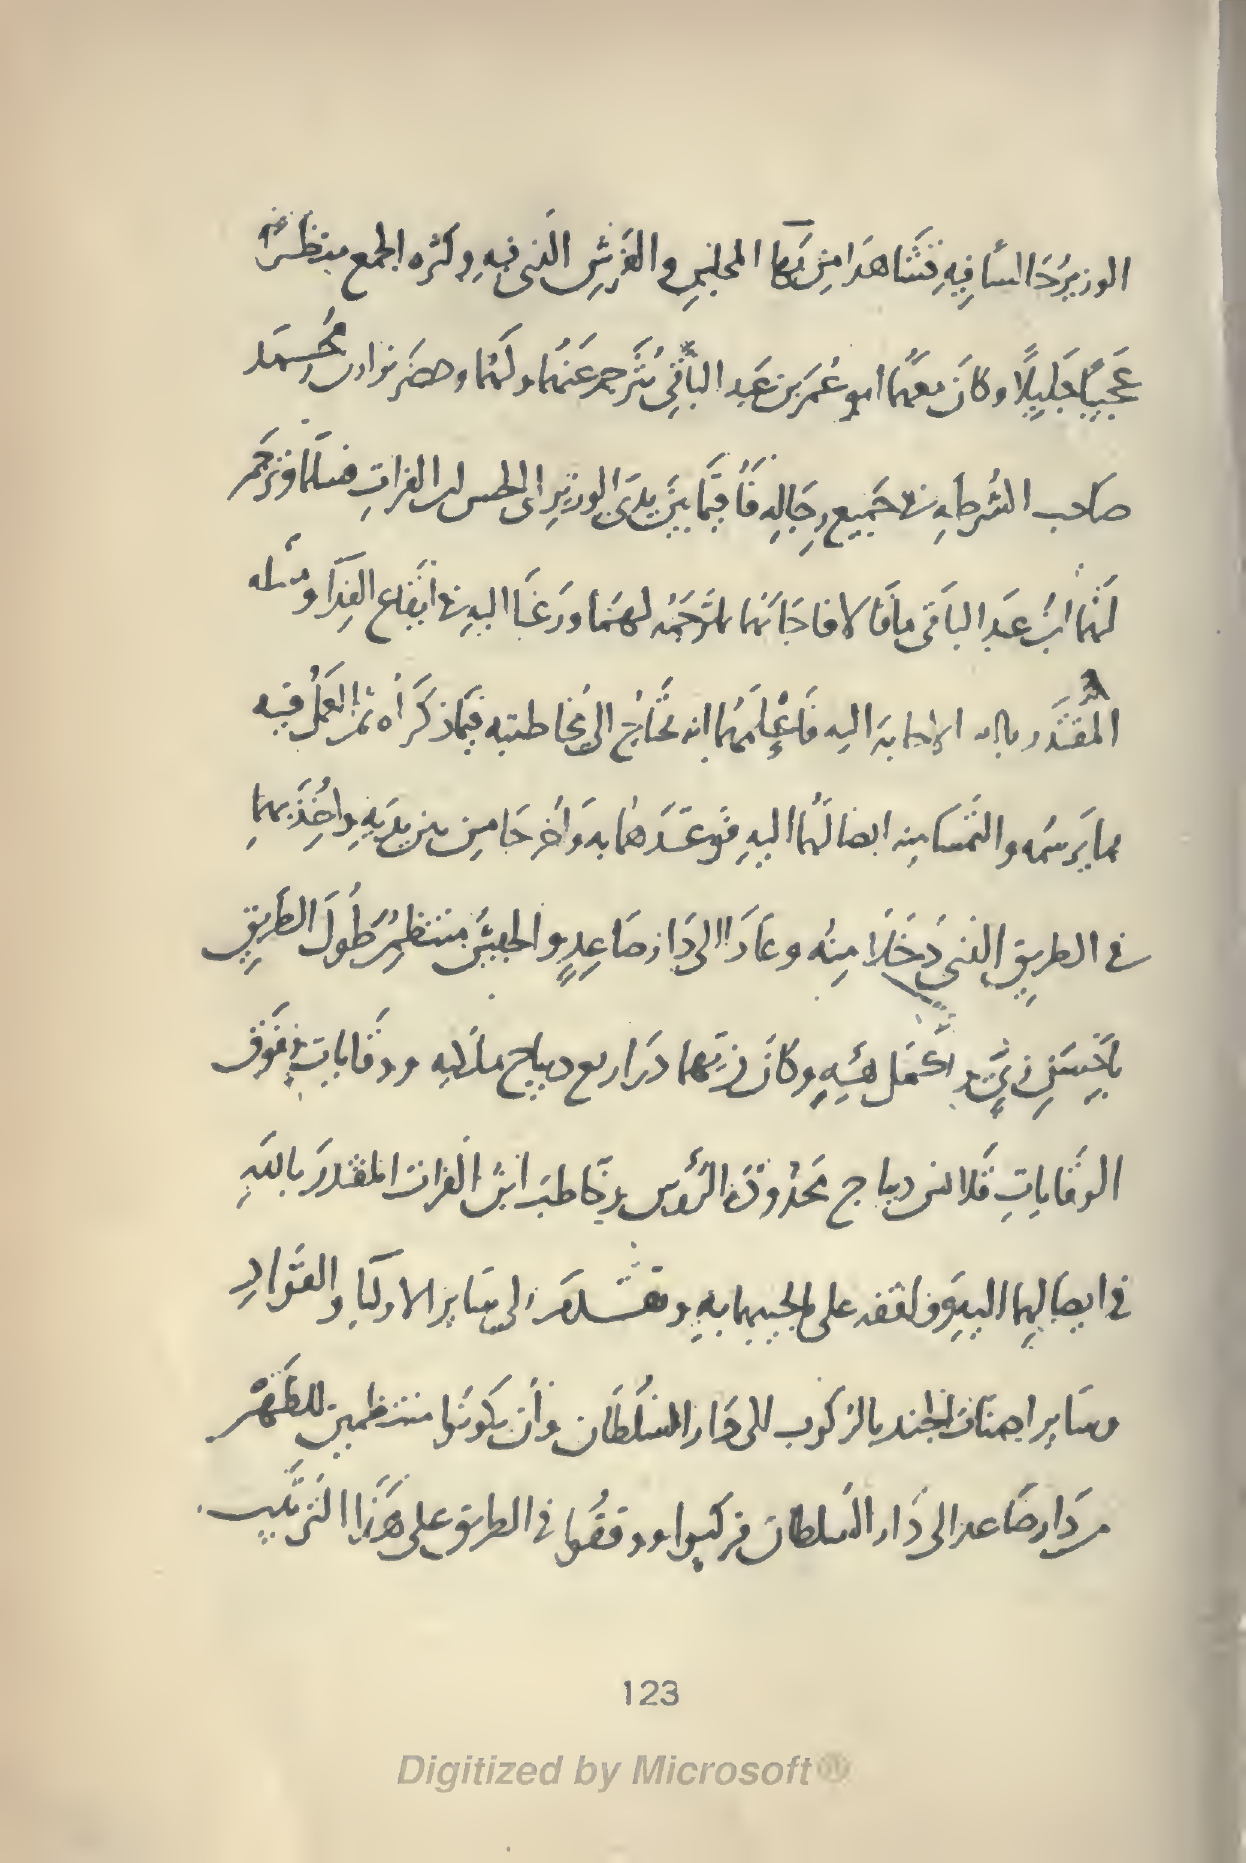 الوزيرُ جَالسًا فِيهِ فَشَاهَدَا مِن بَهَا المجلِسِ والفَرْشِ الذى فِيهِ وكثره الجمع منظرًا
عَجَيبًا جَلِيلًا وكانَ معهُمَا ابو عُمَرَ بن عَبد الباقِى يُتَرجم عَنهُمَا ولَهُمَا وحضَر نزار بن مُحَمد
صَاحب الشُرطه فى جَمِيع رِجَالِهِ فَأُقِيمَا بَيَن يدىَ الوزيرِ ابى الحسن ابن الفراتِ فسلَّمَا وتَرجَم
لَهُمَا ابنُ عَبد البَاقى ما قَالا فاجَابَهُمَا بمَا تَرجَمُه لهمَا ورَغبَا اليهِ فى ايقَاع الفِدَا ومسله
المُقتَدر بالله الإجابَة اليهِ فَأعلَمَهُمَا انه يحتَاجُ الى مُخَاطبته فيمَا ذكَرَاه ثم العَمَلُ فيه
بما يَرسُمه والتَمسَا منه ايصالَهُمَا اليهِ فَوعَدَهُمَا به وَأُخرجَا مِن بين يديهِ وأُخِذَ بهما
فى الطريقِ الذى دَخَلَا مِنهُ وعَادَا الى دَار صَاعِدٍ والجيشُ منتظِمٌ طُولَ الطريقِ
باحسَنِ زىٍّ واكمَل هَيئهٍ وكَان زيّهما درَاريع ديباج ملكيه ووقايات وفوَق
الوقاياتِ قلانس ديباج محَدُودَة الرَّؤس وخَاطبَ ابنُ الفرات المقتدرَ باللهِ
فى ايصالِهمَا اليهِ ووافقه على مايجيبهما بهِ وتقدَّم الى سَاير الاوليَا والقوَّادِ
وسَاير اصنَاف الجند بالركوب الى دَار السُلطَان وأن يكونُوا منتظمين للظهْر
من دَار صَاعد الى دَار السُلطان فركبوا ووقفُوا فى الطريق على هَذَا الترتيبِ
123
Digitized by Microsoft®